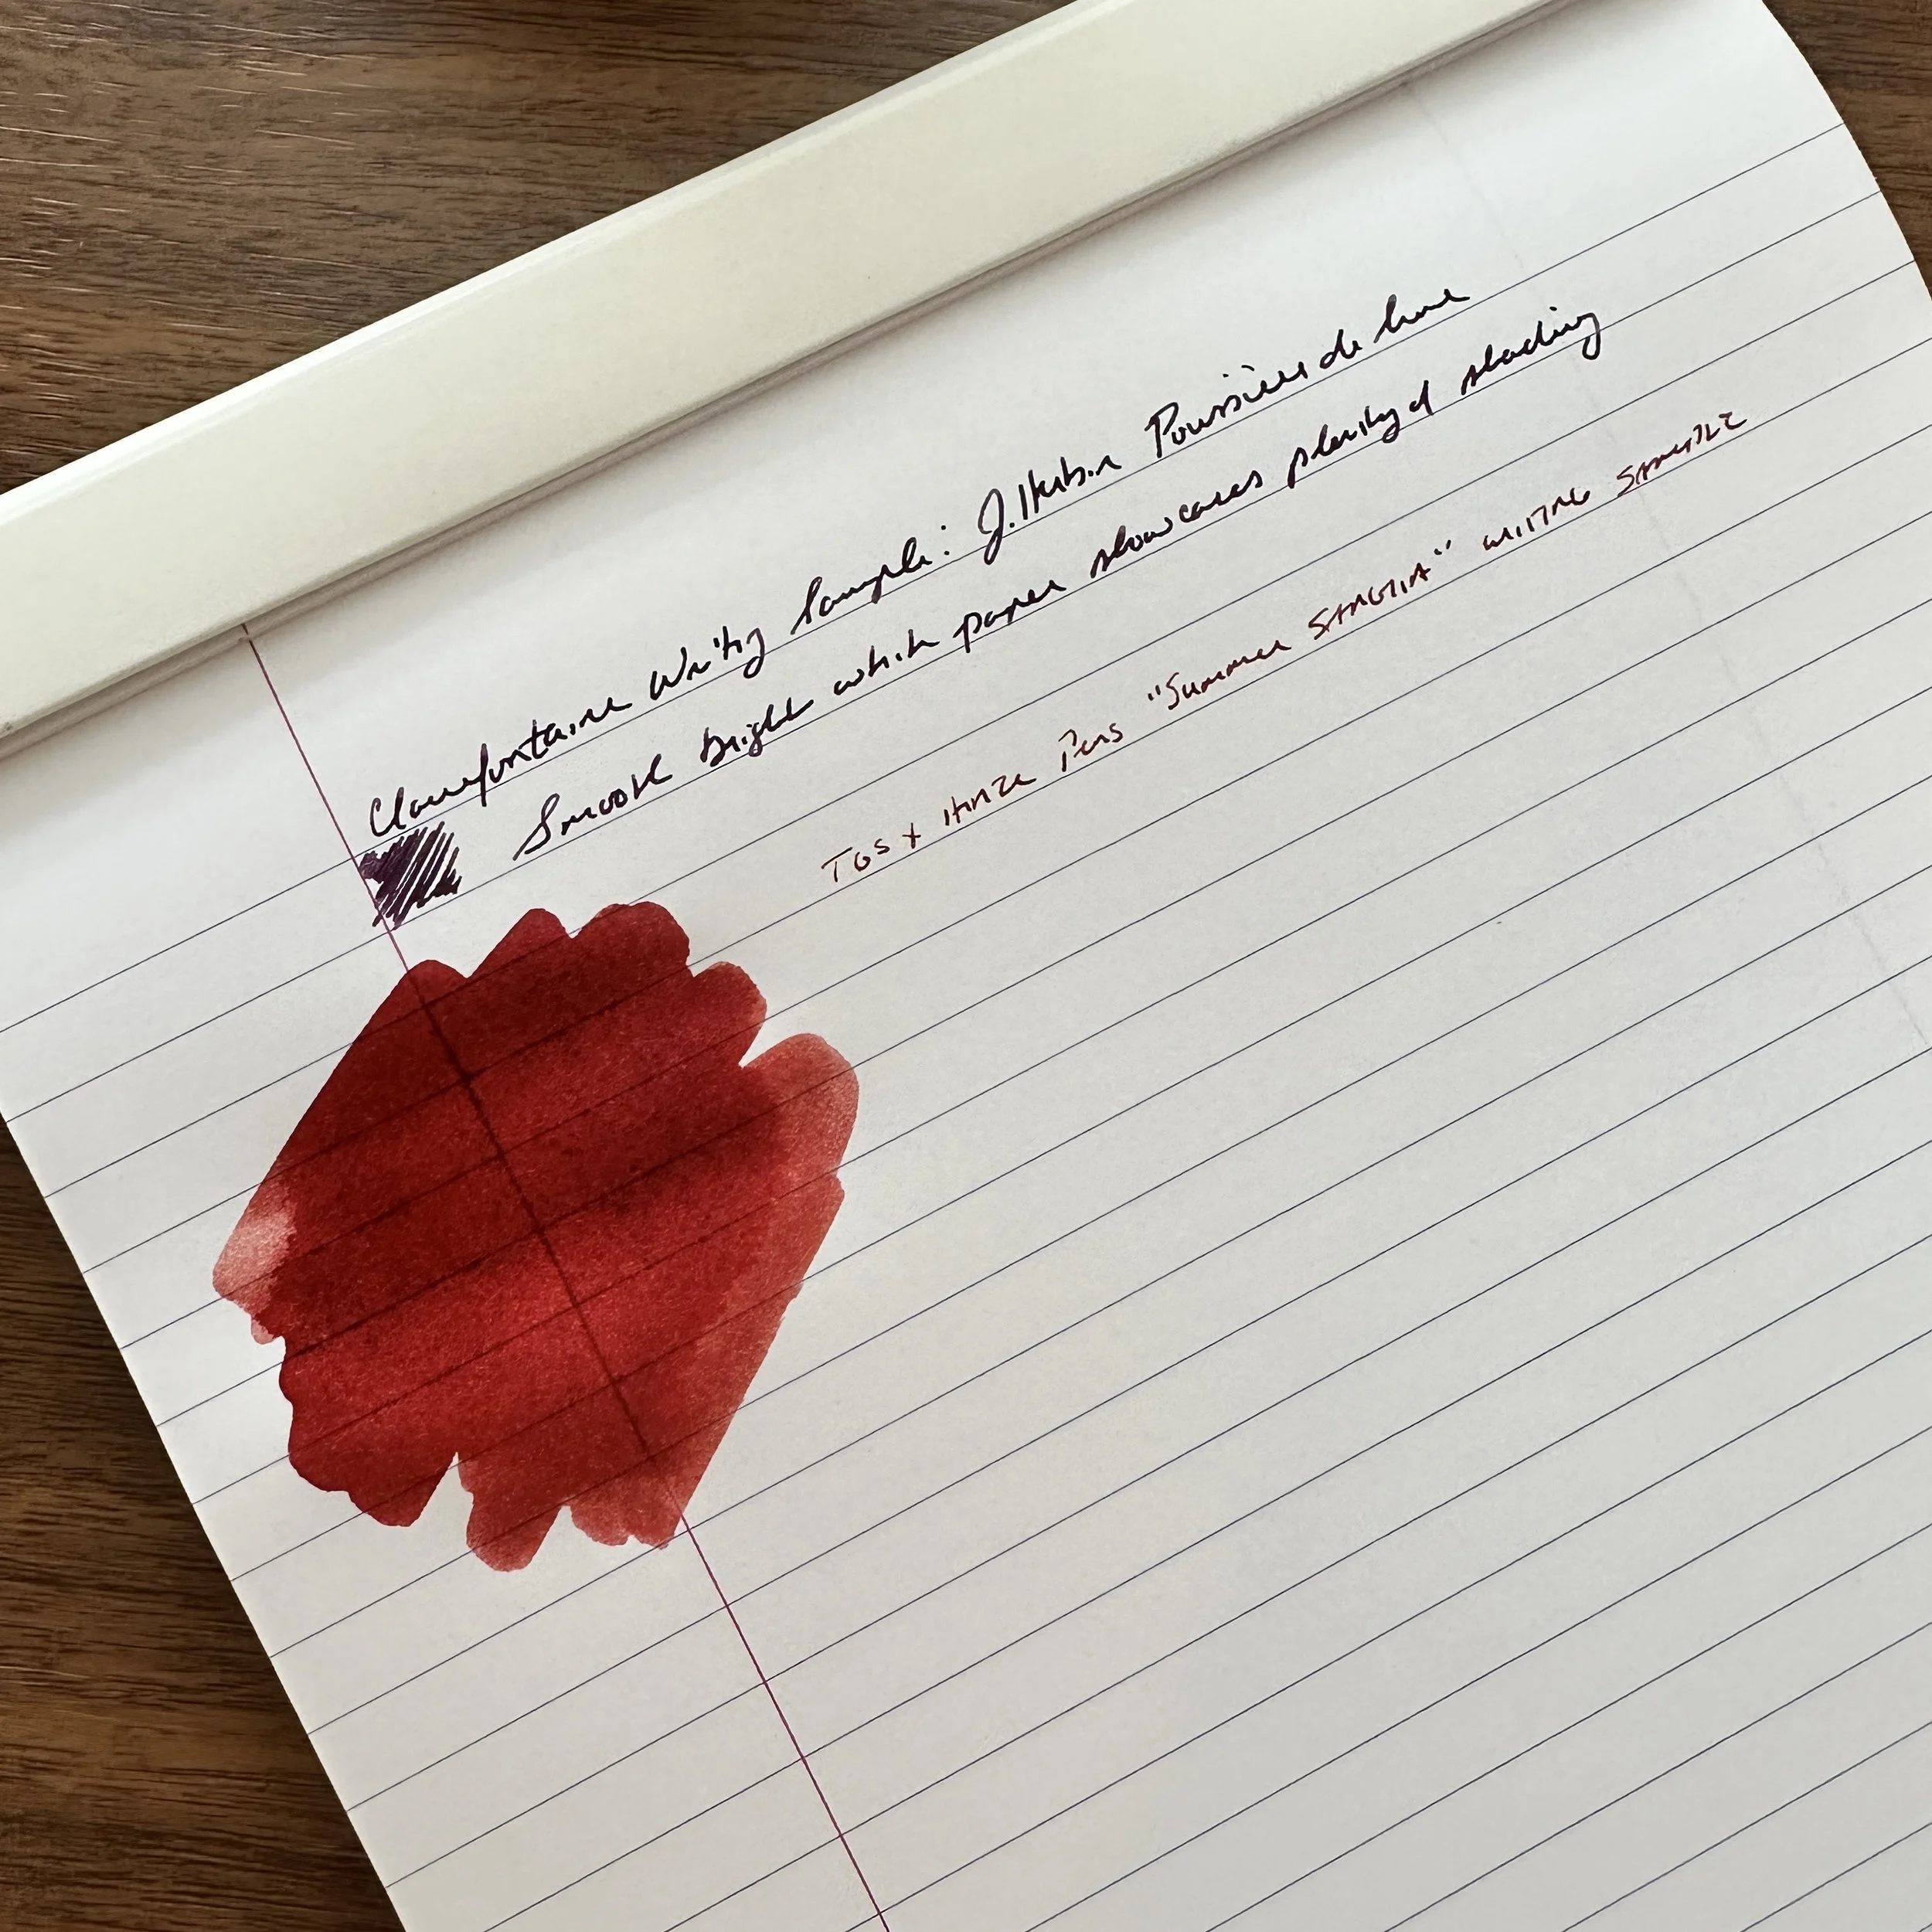 Clairefontaine Writing Sample: J. Herbin Poussière de lune
Smooth bright white paper showcases plenty of shading
TGS x Hinze Pens "Summer SANGRIA" WRITING SAMPLE